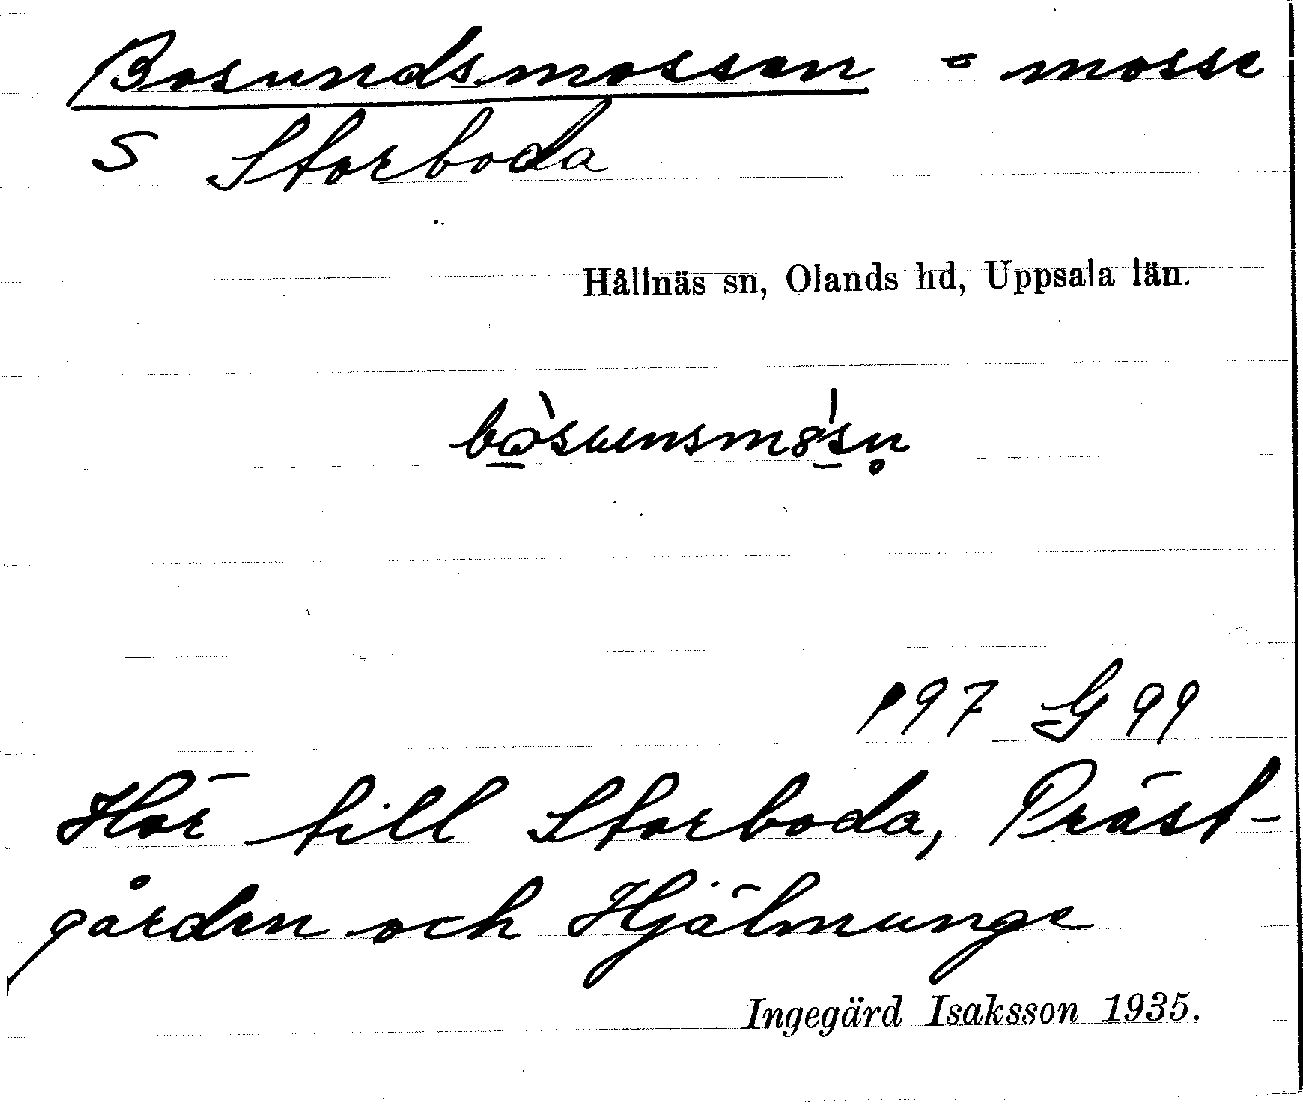 Bosundsmossen = mosse
S Storboda
Hållnäs sn, Olands hd, Uppsala län.
197 G 99
Hör till Storboda, Präst-
gården och Hjälmunge
Ingegärd Isaksson 1935.